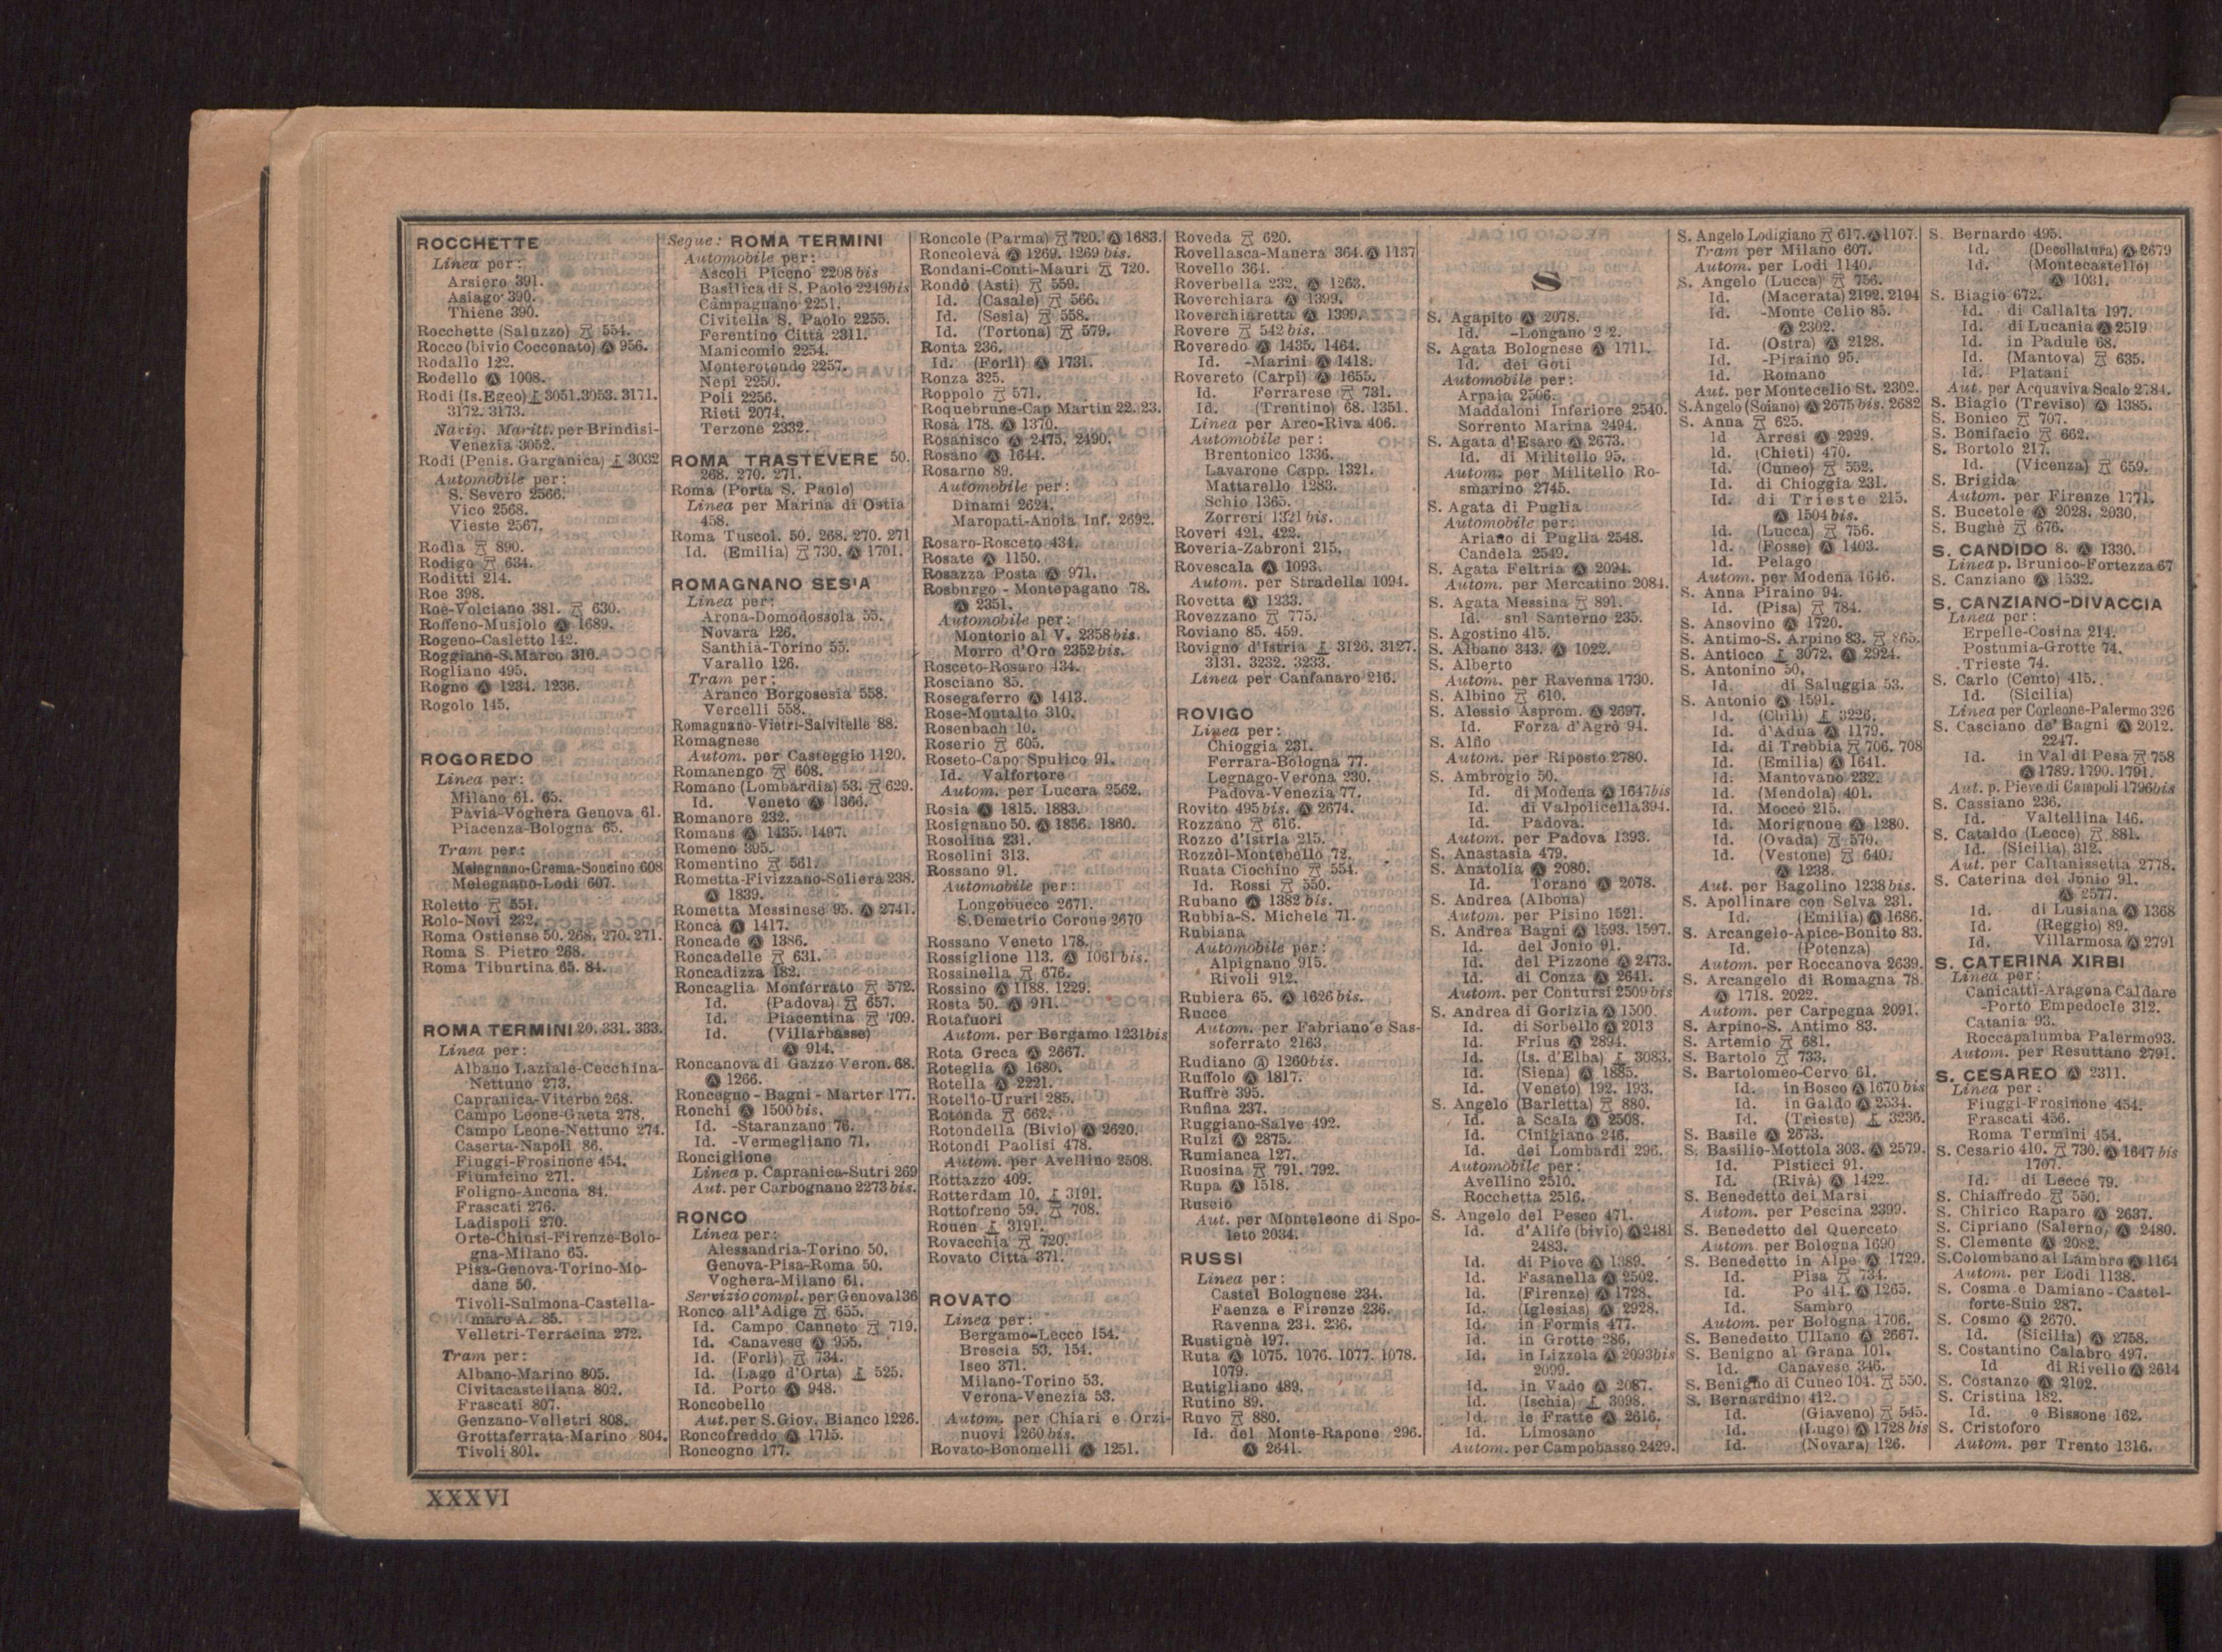 ROCCHETTE
Linea per:
Arsiero 391.
Asiago 390.
Thiene 390.
Rocchette (Saluzzo) 554.
Rocco (bivio Cocconato) Ⓐ 956.
Rodallo 122.
Rodello Ⓐ 1008.
Rodi (Is. Egeo) 3051.3053. 3171.
3172. 3173.
Navig. Maritt. per Brindisi-
Venezia 3052.
Rodi (Penis. Garganica) 3032
Automobile per:
S. Severo 2566.
Vico 2568.
Vieste 2567.
Rodìa 890.
Rodigo 634.
Roditti 214.
Roe 398.
Roè-Volciano 381. 630.
Roffeno-Musiolo Ⓐ 1689.
Rogeno-Casletto 142.
Roggiano-S.Marco 310.
Rogliano 495.
Rogno Ⓐ 1234. 1236.
Rogolo 145.
ROGOREDO
Linea per:
Milano 61. 65.
Pavia-Voghera Genova 61.
Piacenza-Bologna 65.
Tram per:
Melegnano-Crema-Soncino 608
Melegnano-Lodi 607.
Roletto 551.
Rolo-Novi 232.
Roma Ostiense 50. 268. 270. 271.
Roma S. Pietro 268.
Roma Tiburtina 65. 84.
ROMA TERMINI 20. 331. 333.
Linea per:
Albano Laziale-Cecchina-
Nettuno 273.
Capranica-Viterbo 268.
Campo Leone-Gaeta 278.
Campo Leone-Nettuno 274.
Caserta-Napoli 86.
Fiuggi-Frosinone 454.
Fiumicino 271.
Foligno-Ancona 84.
Frascati 276.
Ladispoli 270.
Orte-Chiusi-Firenze-Bolo-
gna-Milano 65.
Pisa-Genova-Torino-Mo-
dane 50.
Tivoli-Sulmona-Castella-
mare A. 85.
Velletri-Terracina 272.
Tram per:
Albano-Marino 805.
Civitacastellana 802.
Frascati 807.
Genzano-Velletri 808.
Grottaferrata-Marino 804.
Tivoli 801.
Segue: ROMA TERMINI
Automobile per:
Ascoli Piceno 2208 bis
Basilica di S. Paolo 2249bis
Campagnano 2251.
Civitella S. Paolo 2255.
Ferentino Città 2311.
Manicomio 2254.
Monterotondo 2257.
Nepi 2250.
Poli 2256.
Rieti 2074.
Terzone 2332.
ROMA TRASTEVERE 50.
268. 270. 271.
Roma (Porta S. Paolo)
Linea per Marina di Ostia
458.
Roma Tuscol. 50. 268. 270. 271
Id. (Emilia) 730. Ⓐ 1701.
ROMAGNANO SESIA
Linea per:
Arona-Domodossola 55.
Novara 126.
Santhià-Torino 55.
Varallo 126.
Tram per:
Aranco Borgosesia 558.
Vercelli 558.
Romagnano-Vietri-Salvitelle 88.
Romagnese
Autom. per Casteggio 1120.
Romanengo 608.
Romano (Lombardia) 53. 629.
Id. Veneto Ⓐ 1366.
Romanore 232.
Romans Ⓐ 1435. 1497.
Romeno 395.
Romentino 561.
Rometta-Fivizzano-Soliera 238.
Ⓐ 1839.
Rometta Messinese 95. Ⓐ 2741.
Roncà Ⓐ 1417.
Roncade Ⓐ 1386.
Roncadelle 631.
Roncadizza 182.
Roncaglia Monferrato 572.
Id. (Padova) 657.
Id. Piacentina 709.
Id. (Villarbasse)
Ⓐ 914.
Roncanova di Gazzo Veron. 68.
Ⓐ 1266.
Roncegno - Bagni - Marter 177.
Ronchi Ⓐ 1500 bis.
Id. -Staranzano 76.
Id. -Vermegliano 71.
Ronciglione
Linea p. Capranica-Sutri 269
Aut. per Carbognano 2273 bis.
RONCO
Linea per:
Alessandria-Torino 50.
Genova-Pisa-Roma 50.
Voghera-Milano 61.
Servizio compl. per Genova 136
Ronco all'Adige 655.
Id. Campo Canneto 719.
Id. Canavese Ⓐ 955.
Id. (Forlì) 734.
Id. (Lago d'Orta) 525.
Id. Porto Ⓐ 948.
Roncobello
Aut. per S. Giov. Bianco 1226.
Roncofreddo Ⓐ 1715.
Roncogno 177.
Roncole (Parma) 720. Ⓐ 1683.
Roncolevà Ⓐ 1269. 1269 bis.
Rondani-Conti-Mauri 720.
Rondò (Asti) 559.
Id. (Casale) 566.
Id. (Sesia) 558.
Id. (Tortona) 579.
Ronta 236.
Id. (Forlì) Ⓐ 1731.
Ronza 325.
Roppolo 571.
Roquebrune-Cap Martin 22. 23.
Rosà 178. Ⓐ 1370.
Rosanisco Ⓐ 2475. 2490.
Rosano Ⓐ 1644.
Rosarno 89.
Automobile per:
Dinami 2624.
Maropati-Anoia Inf. 2692.
Rosaro-Rosceto 434.
Rosate Ⓐ 1150.
Rosazza Posta Ⓐ 971.
Rosburgo - Montepagano 78.
Ⓐ 2351.
Automobile per:
Montorio al V. 2358 bis.
Morro d'Oro 2352 bis.
Rosceto-Rosaro 434.
Rosciano 85.
Rosegaferro Ⓐ 1413.
Rose-Montalto 310.
Rosenbach 10.
Roserio 605.
Roseto-Capo Spulico 91.
Id. Valfortore
Autom. per Lucera 2562.
Rosia Ⓐ 1815. 1883.
Rosignano 50. Ⓐ 1856. 1860.
Rosolina 231.
Rosolini 313.
Rossano 91.
Automobile per:
Longobucco 2671.
S.Demetrio Corone 2670
Rossano Veneto 178.
Rossiglione 113. Ⓐ 1061 bis.
Rossinella 676.
Rossino Ⓐ 1188. 1229.
Rosta 50. Ⓐ 911.
Rotafuori
Autom. per Bergamo 1231bis
Rota Greca Ⓐ 2667.
Roteglia Ⓐ 1680.
Rotella Ⓐ 2221.
Rotello-Ururi 285.
Rotonda 662.
Rotondella (Bivio) Ⓐ 2620.
Rotondi Paolisi 478.
Autom. per Avellino 2508.
Rottazzo 409.
Rotterdam 10. 3191.
Rottofreno 59. 708.
Rouen 3191.
Rovacchia 720.
Rovato Città 371.
ROVATO
Linea per:
Bergamo-Lecco 154.
Brescia 53. 154.
Iseo 371.
Milano-Torino 53.
Verona-Venezia 53.
Autom. per Chiari e Orzi-
nuovi 1260 bis.
Rovato-Bonomelli Ⓐ 1251.
Roveda 620.
Rovellasca-Manera 364. Ⓐ 1137
Rovello 364.
Roverbella 232. Ⓐ 1263.
Roverchiara Ⓐ 1399.
Roverchiaretta Ⓐ 1399.
Rovere 542 bis.
Roveredo Ⓐ 1435. 1464.
Id. -Marini Ⓐ 1418.
Rovereto (Carpi) Ⓐ 1655.
Id. Ferrarese 731.
Id. (Trentino) 68. 1351.
Linea per Arco-Riva 406.
Automobile per:
Brentonico 1336.
Lavarone Capp. 1321.
Mattarello 1283.
Schio 1365.
Zorreri 1321 bis.
Roveri 421. 422.
Roveria-Zabroni 215.
Rovescala Ⓐ 1093.
Autom. per Stradella 1094.
Rovetta Ⓐ 1233.
Rovezzano 775.
Roviano 85. 459.
Rovigno d'Istria 3126. 3127.
3131. 3232. 3233.
Linea per Canfanaro 216.
ROVIGO
Linea per:
Chioggia 231.
Ferrara-Bologna 77.
Legnago-Verona 230.
Padova-Venezia 77.
Rovito 495 bis. Ⓐ 2674.
Rozzano 616.
Rozzo d'Istria 215.
Rozzòl-Montebello 72.
Ruata Ciochino 554.
Id. Rossi 550.
Rubano Ⓐ 1382 bis.
Rubbia-S. Michele 71.
Rubiana
Automobile per:
Alpignano 915.
Rivoli 912.
Rubiera 65. Ⓐ 1626 bis.
Rucce
Autom. per Fabriano e Sas-
soferrato 2163.
Rudiano Ⓐ 1260bis.
Ruffolo Ⓐ 1817.
Ruffrè 395.
Rufina 237.
Ruggiano-Salve 492.
Rulzi Ⓐ 2875.
Rumianca 127.
Ruosina 791. 792.
Rupa Ⓐ 1518.
Ruscio
Aut. per Monteleone di Spo-
leto 2034.
RUSSI
Linea per:
Castel Bolognese 234.
Faenza e Firenze 236.
Ravenna 234. 236.
Rustignè 197.
Ruta Ⓐ 1075. 1076. 1077. 1078.
1079.
Rutigliano 489.
Rutino 89.
Ruvo 880.
Id. del Monte-Rapone 296.
Ⓐ 2641.
S
S. Agapito Ⓐ 2078.
Id. -Longano 2 2.
S. Agata Bolognese Ⓐ 1711.
Id. dei Goti
Automobile per:
Arpaia 2506.
Maddaloni Inferiore 2540.
Sorrento Marina 2494.
S. Agata d'Esaro Ⓐ 2673.
Id. di Militello 95.
Autom. per Militello Ro-
smarino 2745.
S. Agata di Puglia
Automobile per:
Ariano di Puglia 2548.
Candela 2549.
S. Agata Feltria Ⓐ 2094.
Autom. per Mercatino 2084.
S. Agata Messina 891.
Id. sul Santerno 235.
S. Agostino 415.
S. Albano 343. Ⓐ 1022.
S. Alberto
Autom. per Ravenna 1730.
S. Albino 610.
S. Alessio Asprom. Ⓐ 2697.
Id. Forza d'Agrò 94.
S. Alfio
Autom. per Riposto 2780.
S. Ambrogio 50.
Id. di Modena Ⓐ 1647bis
Id. di Valpolicella 394.
Id. Padova.
Autom. per Padova 1393.
S. Anastasia 479.
S. Anatolia Ⓐ 2080.
Id. Torano Ⓐ 2078.
S. Andrea (Albona)
Autom. per Pisino 1521.
S. Andrea Bagni Ⓐ 1593. 1597.
Id. del Jonio 91.
Id. del Pizzone Ⓐ 2473.
Id. di Conza Ⓐ 2641.
Autom. per Contursi 2509 bis
S. Andrea di Gorizia Ⓐ 1500.
Id. di Sorbello Ⓐ 2013
Id. Frius Ⓐ 2894.
Id. (Is. d'Elba) 3083.
Id. (Siena) Ⓐ 1885.
Id. (Veneto) 192. 193.
S. Angelo (Barletta) 880.
Id. a Scala Ⓐ 2508.
Id. Cinigiano 246.
Id. dei Lombardi 296.
Automobile per:
Avellino 2510.
Rocchetta 2516.
S. Angelo del Pesco 471.
Id. d'Alife (bivio) Ⓐ 2481
2483.
Id. di Piove Ⓐ 1389.
Id. Fasanella Ⓐ 2502.
Id. (Firenze) Ⓐ 1728.
Id. (Iglesias) Ⓐ 2928.
Id. in Formis 477.
Id. in Grotte 286.
Id. in Lizzola Ⓐ 2093bis
2099.
Id. in Vado Ⓐ 2087.
Id. (Ischia) 3098.
Id. le Fratte Ⓐ 2616.
Id. Limosano
Autom. per Campobasso 2429.
S. Angelo Lodigiano 617. Ⓐ 1107.
Tram per Milano 607.
Autom. per Lodi 1140.
S. Angelo (Lucca) 756.
Id. (Macerata) 2192. 2194
Id. -Monte Celio 85.
Ⓐ 2302.
Id. (Ostra) Ⓐ 2128.
Id. -Piraino 95.
Id. Romano
Aut. per Montecelio St. 2302.
S. Angelo (Soiano) Ⓐ 2675 bis. 2682
S. Anna 625.
Id Arresi Ⓐ 2929.
Id. (Chieti) 470.
Id. (Cuneo) 552.
Id. di Chioggia 231.
Id. di Trieste 215.
Ⓐ 1504 bis.
Id. (Lucca) 756.
Id. (Fosse) Ⓐ 1403.
Id. Pelago
Autom. per Modena 1646.
S. Anna Piraino 94.
Id. (Pisa) 784.
S. Ansovino Ⓐ 1720.
S. Antimo-S. Arpino 83. 865.
S. Antioco 3072. Ⓐ 2924.
S. Antonino 50.
Id. di Saluggia 53.
S. Antonio Ⓐ 1591.
Id. (Chili) 3226.
Id. d'Adua Ⓐ 1179.
Id. di Trebbia 706. 708
Id. (Emilia) Ⓐ 1641.
Id. Mantovano 232.
Id. (Mendola) 401.
Id. Moccò 215.
Id. Morignone Ⓐ 1280.
Id. (Ovada) 570.
Id. (Vestone) 640.
Ⓐ 1238.
Aut. per Bagolino 1238 bis.
S. Apollinare con Selva 231.
Id. (Emilia) Ⓐ 1686.
S. Arcangelo-Apice-Bonito 83.
Id. (Potenza)
Autom. per Roccanova 2639.
S. Arcangelo di Romagna 78.
Ⓐ 1718. 2022.
Autom. per Carpegna 2091.
S. Arpino-S. Antimo 83.
S. Artemio 681.
S. Bartolo 733.
S. Bartolomeo-Cervo 61.
Id. in Bosco Ⓐ 1670 bis
Id. in Galdo Ⓐ 2534.
Id. (Trieste) 3236.
S. Basile Ⓐ 2673.
S. Basilio-Mottola 303. Ⓐ 2579.
Id. Pisticci 91.
Id. (Rivà) Ⓐ 1422.
S. Benedetto dei Marsi
Autom. per Pescina 2399.
S. Benedetto del Querceto
Autom. per Bologna 1690
S. Benedetto in Alpe Ⓐ 1729.
Id. Pisa 734.
Id. Po 414. Ⓐ 1265.
Id. Sambro
Autom. per Bologna 1706.
S. Benedetto Ullano Ⓐ 2667.
S. Benigno al Grana 101.
Id. Canavese 346.
S. Benigno di Cuneo 104. 550.
S. Bernardino 412.
Id. (Giaveno) 545.
Id. (Lugo) Ⓐ 1728 bis
Id. (Novara) 126.
S. Bernardo 495.
Id. (Decollatura) Ⓐ 2679
Id. (Montecastello)
Ⓐ 1031.
S. Biagio 672.
Id. di Callalta 197.
Id. di Lucania Ⓐ 2519
Id. in Padule 68.
Id. (Mantova) 635.
Id. Platani
Aut. per Acquaviva Scalo 2784.
S. Biagio (Treviso) Ⓐ 1385.
S. Bonico 707.
S. Bonifacio 662.
S. Bortolo 217.
Id. (Vicenza) 659.
S. Brigida
Autom. per Firenze 1771.
S. Bucetole Ⓐ 2028. 2030.
S. Bughè 676.
S. CANDIDO 8. Ⓐ 1330.
Linea p. Brunico-Fortezza 67
S. Canziano Ⓐ 1532.
S. CANZIANO-DIVACCIA
Linea per:
Erpelle-Cosina 214.
Postumia-Grotte 74.
Trieste 74.
S. Carlo (Cento) 415.
Id. (Sicilia)
Linea per Corleone-Palermo 326
S. Casciano de' Bagni Ⓐ 2012.
2247.
Id. in Val di Pesa 758
Ⓐ 1789. 1790. 1791.
Aut. p. Pieve di Campoli 1796bis
S. Cassiano 236.
Id. Valtellina 146.
S. Cataldo (Lecce) 881.
Id. (Sicilia) 312.
Aut. per Caltanissetta 2778.
S. Caterina del Jonio 91.
Ⓐ 2577.
Id. di Lusiana Ⓐ 1368
Id. (Reggio) 89.
Id. Villarmosa Ⓐ 2791
S. CATERINA XIRBI
Linea per:
Canicattì-Aragona Caldare
-Porto Empedocle 312.
Catania 93.
Roccapalumba Palermo 93.
Autom. per Resuttano 2791.
S. CESAREO Ⓐ 2311.
Linea per:
Fiuggi-Frosinone 454.
Frascati 456.
Roma Termini 454.
S. Cesario 410. 730. Ⓐ 1647 bis
1707.
Id. di Lecce 79.
S. Chiaffredo 550.
S. Chirico Raparo Ⓐ 2637.
S. Cipriano (Salerno) Ⓐ 2480.
S. Clemente Ⓐ 2082.
S. Colombano al Lambro Ⓐ 1164
Autom. per Lodi 1138.
S. Cosma e Damiano-Castel-
forte-Suio 287.
S. Cosmo Ⓐ 2670.
Id. (Sicilia) Ⓐ 2758.
S. Costantino Calabro 497.
Id di Rivello Ⓐ 2614
S. Costanzo Ⓐ 2102.
S. Cristina 182.
Id. e Bissone 162.
S. Cristoforo
Autom. per Trento 1316.
XXXVI